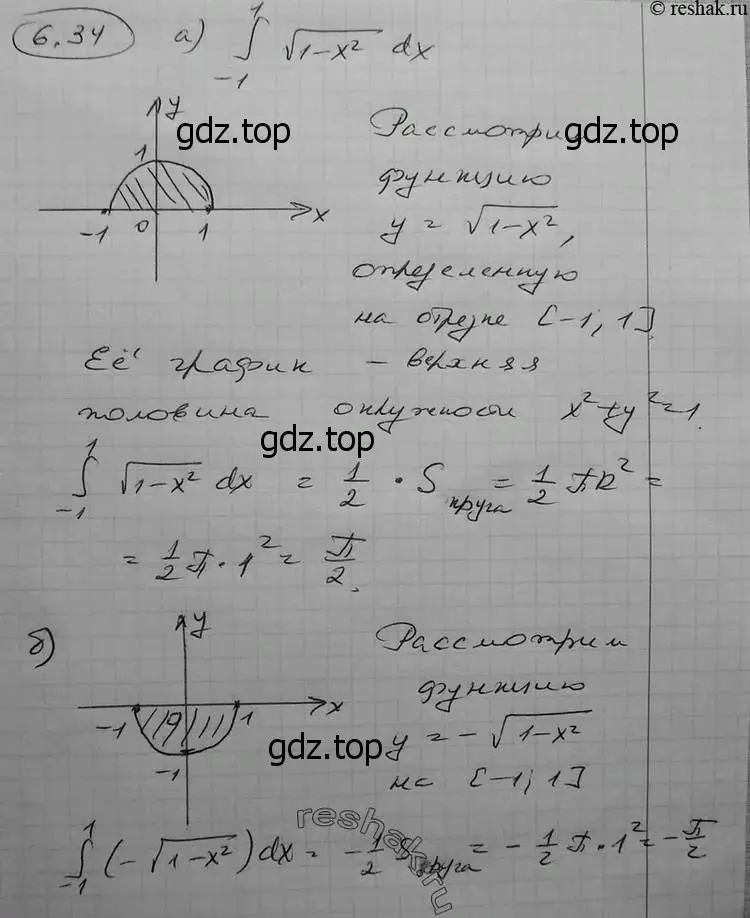 © reshak.ru
6.34 а) ∫₋₁¹ √(1-x²) dx
y
gdz.top
1
-1 0 1 x
Рассмотрим
функцию
y = √(1-x²),
определенную
на отрезке [-1; 1].
Её график - верхняя
половина окружности x²+y²=1.
gdz.top
∫₋₁¹ √(1-x²) dx = 1/2 · S круга = 1/2 πR² =
= 1/2 π · 1² = π/2.
б)
y
-1 1 x
-1
gdz.top
Рассмотрим
функцию
y = -√(1-x²)
на [-1; 1]
reshak.ru
∫₋₁¹ (-√(1-x²)) dx = -1/2 S круга = -1/2 π · 1² = -π/2